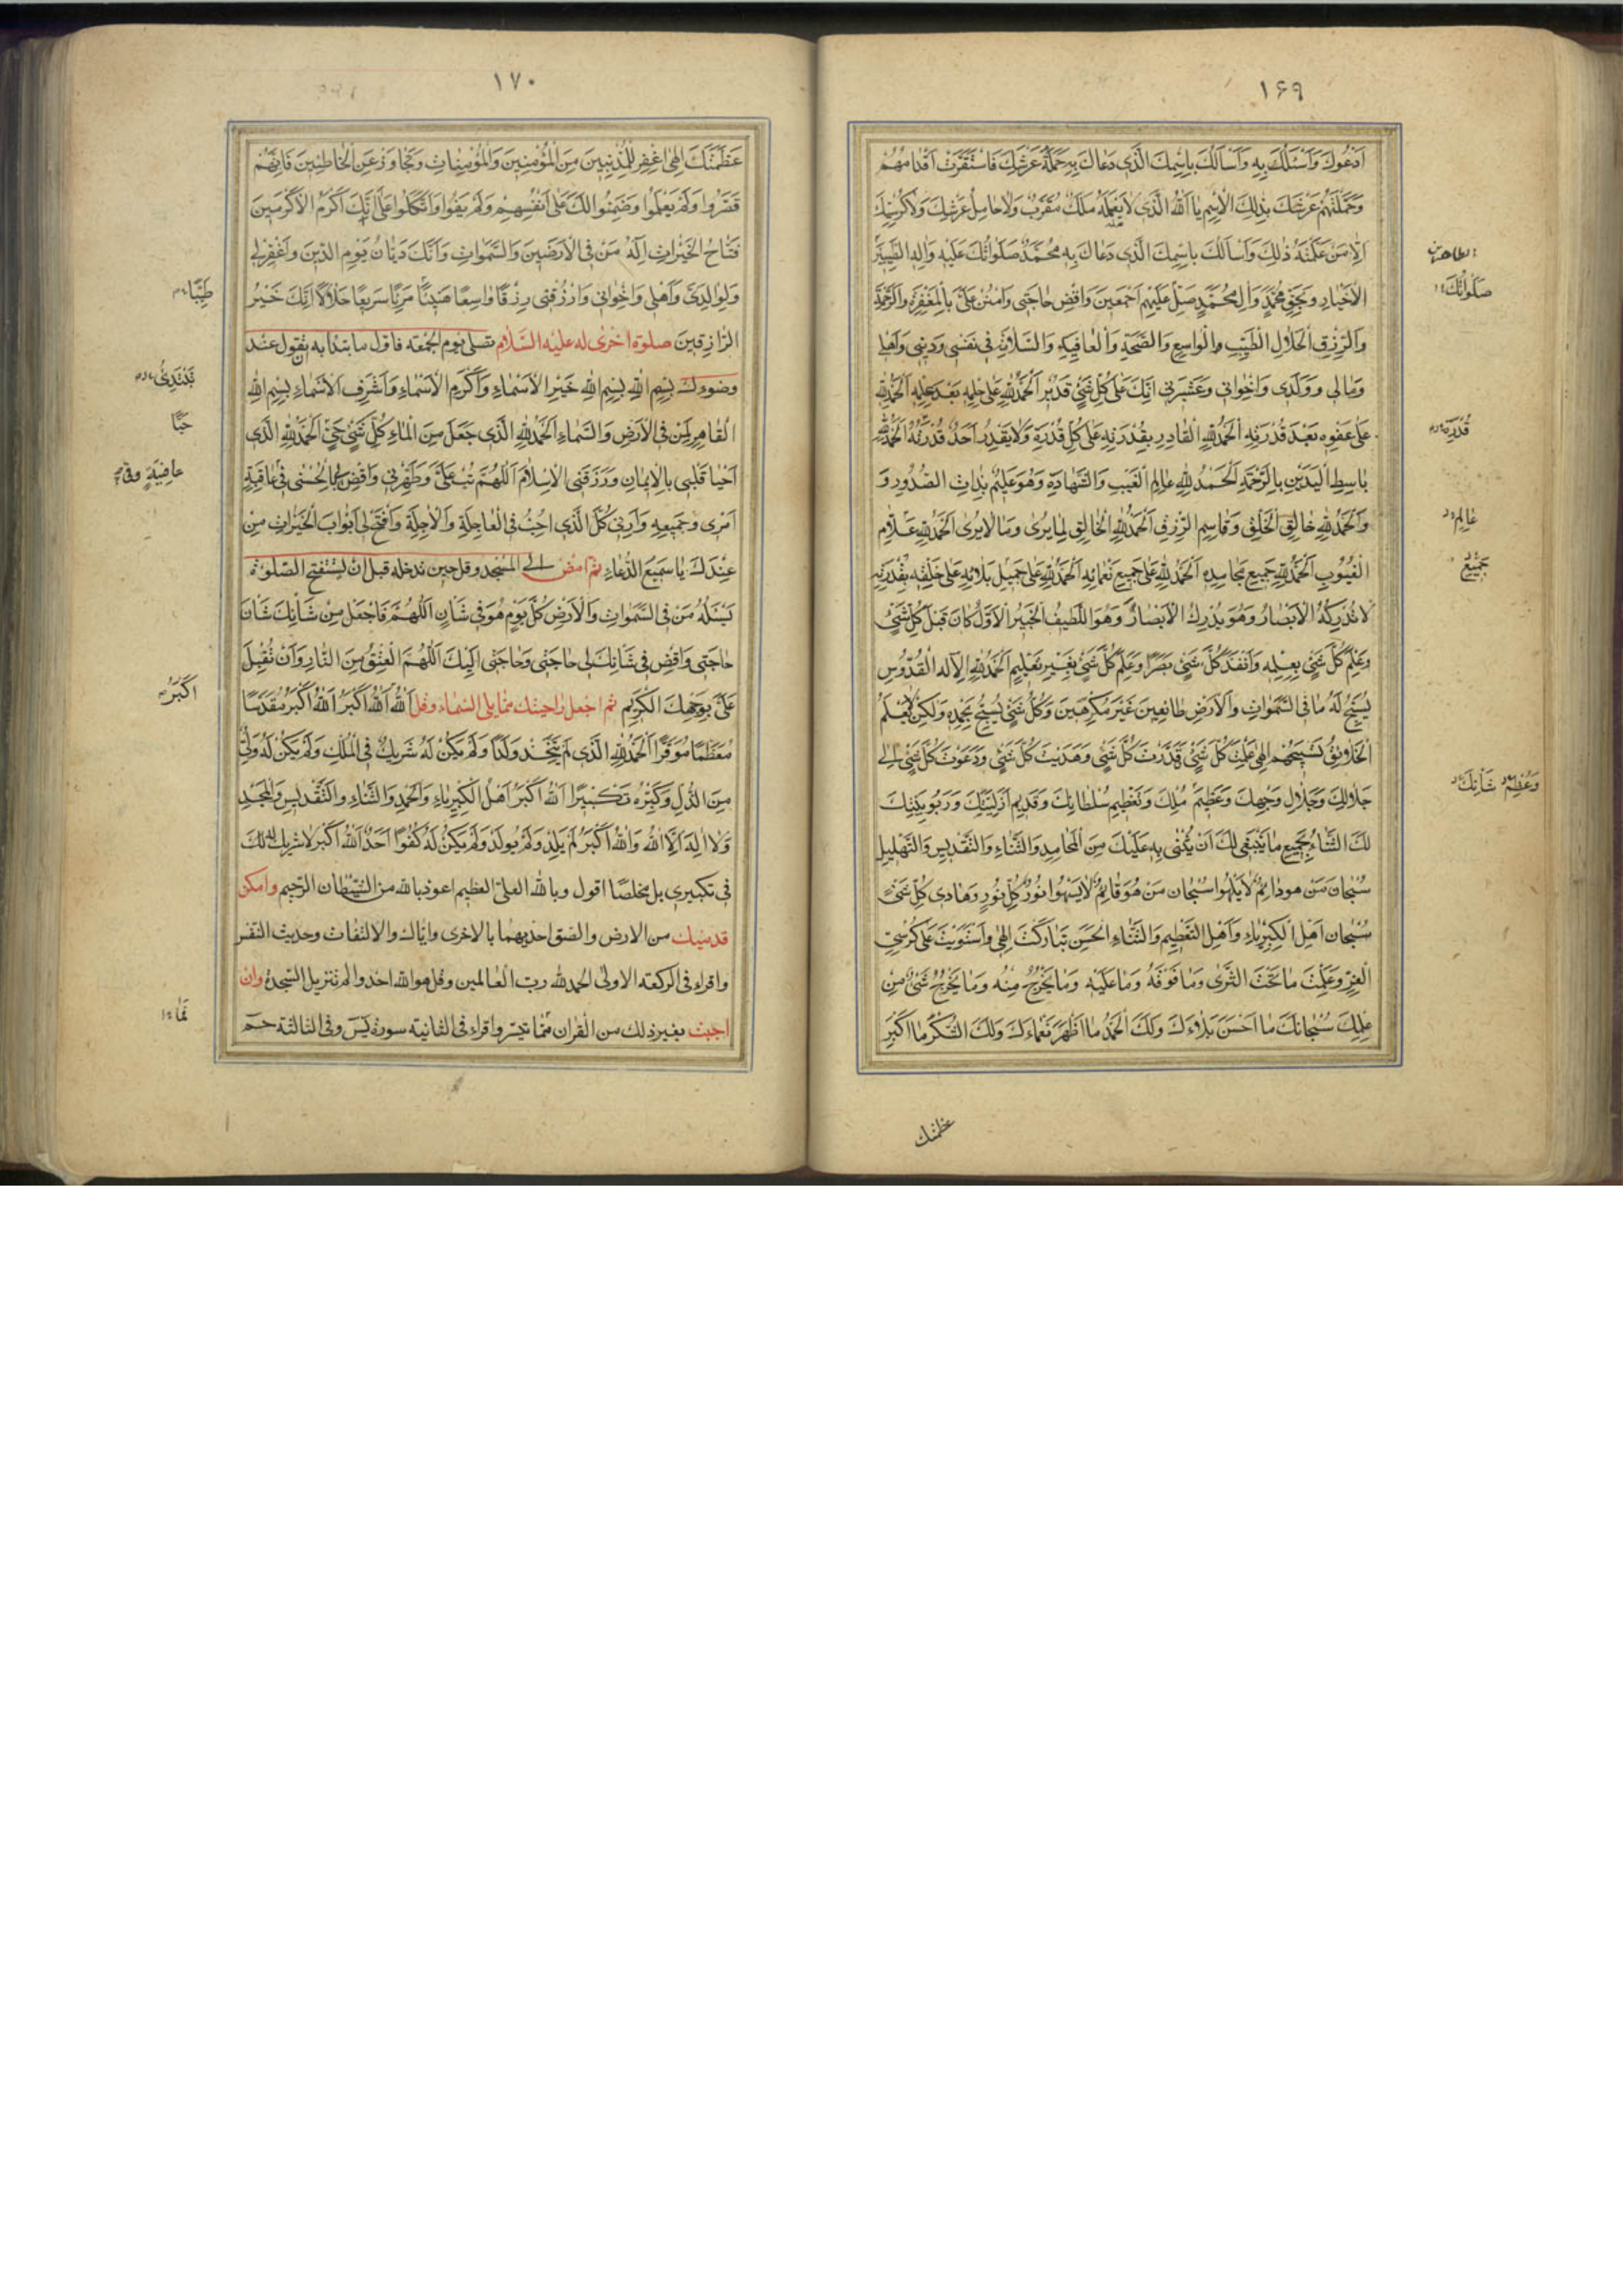 ١٦٩
اَدْعُوكَ وَاَسْئَلُكَ بِهِ وَاَسْأَلُكَ بِاسْمِكَ الَّذِي دَعَاكَ بِهِ حَمَلَةُ عَرْشِكَ فَاسْتَقَرَّتْ اَقْدَامُهُمْ
وَحَمَّلْتَهُمْ عَرْشَكَ بِذٰلِكَ الْاِسْمِ يَا اَللّٰهُ الَّذِي لَا يَعْلَمُهُ مَلَكٌ مُقَرَّبٌ وَلَا حَامِلُ عَرْشِكَ وَلَا كُرْسِيِّكَ
اِلَّا مَنْ عَلَّمْتَهُ ذٰلِكَ وَاَسْاَلُكَ بِاسْمِكَ الَّذِي دَعَاكَ بِهِ مُحَمَّدٌ صَلَوَاتُكَ عَلَيْهِ وَاٰلِهِ الطَّيِّبِينَ
الطاهرين
صَلَوَاتُكَ
الْاَخْيَارِ وَبِحَقِّ مُحَمَّدٍ وَاٰلِ مُحَمَّدٍ صَلِّ عَلَيْهِمْ اَجْمَعِينَ وَاقْضِ حَاجَتِي وَامْنُنْ عَلَيَّ بِالْمَغْفِرَةِ وَالرَّحْمَةِ
وَالرِّزْقِ الْحَلَالِ الطَّيِّبِ وَالْوَاسِعِ وَالصِّحَّةِ وَالْعَافِيَةِ وَالسَّلَامَةِ فِي نَفْسِي وَدِينِي وَاَهْلِي
وَمَالِي وَوَلَدِي وَاِخْوَانِي وَعَشِيرَتِي اِنَّكَ عَلٰى كُلِّ شَيْءٍ قَدِيرٌ اَلْحَمْدُ لِلّٰهِ عَلٰى حِلْمِهِ بَعْدَ عِلْمِهِ اَلْحَمْدُ لِلّٰهِ
عَلٰى عَفْوِهِ بَعْدَ قُدْرَتِهِ اَلْحَمْدُ لِلّٰهِ الْقَادِرِ بِقُدْرَتِهِ عَلٰى كُلِّ قُدْرَةٍ وَلَا يَقْدِرُ اَحَدٌ قُدْرَتَهُ اَلْحَمْدُ لِلّٰهِ
قُدْرَةٍ
بَاسِطِ الْيَدَيْنِ بِالرَّحْمَةِ اَلْحَمْدُ لِلّٰهِ عَالِمِ الْغَيْبِ وَالشَّهَادَةِ وَهُوَ عَلِيمٌ بِذَاتِ الصُّدُورِ وَ
وَالْحَمْدُ لِلّٰهِ خَالِقِ الْخَلْقِ وَقَاسِمِ الرِّزْقِ اَلْحَمْدُ لِلّٰهِ الْخَالِقِ لِمَا يُرٰى وَمَا لَا يُرٰى اَلْحَمْدُ لِلّٰهِ عَلَّامِ
عَالِمِ
الْغُيُوبِ اَلْحَمْدُ لِلّٰهِ جَمِيعِ مَحَامِدِهِ اَلْحَمْدُ لِلّٰهِ عَلٰى جَمِيعِ نَعْمَائِهِ اَلْحَمْدُ لِلّٰهِ عَلٰى جَمِيلِ بَلَائِهِ عَلٰى خَلْقِهِ بِقُدْرَتِهِ
جَمِيعِ
لَا تُدْرِكُهُ الْاَبْصَارُ وَهُوَ يُدْرِكُ الْاَبْصَارَ وَهُوَ اللَّطِيفُ الْخَبِيرُ الْاَوَّلُ كَانَ قَبْلَ كُلِّ شَيْءٍ
وَعَلِمَ كُلَّ شَيْءٍ بِعِلْمِهِ وَاَنْفَذَ كُلَّ شَيْءٍ بَصَرًا وَعَلِمَ كُلَّ شَيْءٍ بِغَيْرِ تَعْلِيمٍ اَلْحَمْدُ لِلّٰهِ الْاِلٰهِ الْقُدُّوسِ
يُسَبِّحُ لَهُ مَا فِي السَّمٰوَاتِ وَالْاَرْضِ طَائِعِينَ غَيْرَ مُكْرَهِينَ وَكُلُّ شَيْءٍ يُسَبِّحُ بِحَمْدِهِ وَلٰكِنْ لَا يَعْلَمُ
الْخَلَائِقُ تَسْبِيحَهُمْ اِلٰهِي عَلِمْتَ كُلَّ شَيْءٍ وَقَدَّرْتَ كُلَّ شَيْءٍ وَهَدَيْتَ كُلَّ شَيْءٍ وَدَعَوْتَ كُلَّ شَيْءٍ اِلٰى
جَلَالِكَ وَجَلَالِ وَجْهِكَ وَعَظْمِ مُلْكِكَ وَتَعْظِيمِ سُلْطَانِكَ وَقَدِيمِ اَزَلِيَّتِكَ وَرَبُوبِيَّتِكَ
وَعِظَمِ شَاْنِكَ
لَكَ الثَّنَاءُ بِجَمِيعِ مَا يَنْبَغِي لَكَ اَنْ يُثْنٰى بِهِ عَلَيْكَ مِنَ الْمَحَامِدِ وَالثَّنَاءِ وَالتَّقْدِيسِ وَالتَّهْلِيلِ
سُبْحَانَ مَنْ هُوَ دَائِمٌ لَا يَلْهُو سُبْحَانَ مَنْ هُوَ قَائِمٌ لَا يَسْهُوا نُورُ كُلِّ نُورٍ وَهَادِي كُلِّ شَيْءٍ
سُبْحَانَ اَهْلِ الْكِبْرِيَاءِ وَاَهْلِ التَّعْظِيمِ وَالثَّنَاءِ الْحَسَنِ تَبَارَكْتَ اِلٰهِي وَاسْتَوَيْتَ عَلٰى كُرْسِيِّ
الْعِزِّ وَعَلِمْتَ مَا تَحْتَ الثَّرٰى وَمَا فَوْقَهُ وَمَا عَلَيْهِ وَمَا يَخْرُجُ مِنْهُ وَمَا يَخْرُجُ شَيْءٌ مِنْ
عِلْمِكَ سُبْحَانَكَ مَا اَحْسَنَ بَلَاءَكَ وَلَكَ الْحَمْدُ مَا اَظْهَرَ نَعْمَاءَكَ وَلَكَ الشُّكْرُ مَا اَكْبَرَ
عظمتك
١٧٠
عَظَمَتَكَ اِلٰهِي اغْفِرْ لِلْمُذْنِبِينَ مِنَ الْمُؤْمِنِينَ وَالْمُؤْمِنَاتِ وَتَجَاوَزْ عَنِ الْخَاطِئِينَ فَاِنَّهُمْ
قَصَّرُوا وَلَمْ يَعْلَمُوا وَضَمِنُوا لَكَ عَلٰى اَنْفُسِهِمْ وَلَمْ يَفُوا وَاتَّكَلُوا عَلٰى اَنَّكَ اَكْرَمُ الْاَكْرَمِينَ
فَتَّاحُ الْخَيْرَاتِ اِلٰهُ مَنْ فِي الْاَرَضِينَ وَالسَّمٰوَاتِ وَاَنَّكَ دَيَّانُ يَوْمِ الدِّينِ وَاغْفِرْ لِي
وَلِوَالِدَيَّ وَاَهْلِي وَاِخْوَانِي وَارْزُقْنِي رِزْقًا وَاسِعًا هَنِيئًا مَرِيئًا سَرِيعًا حَلَالًا اِنَّكَ خَيْرُ
طَيِّبًا
الرَّازِقِينَ صلوة اخرى له عليه السّلام تصلى يوم الجمعة فاول ما تبدا به تقول عند
وضوءك بِسْمِ اللّٰهِ بِسْمِ اللّٰهِ خَيْرِ الْاَسْمَاءِ وَاَكْرَمِ الْاَسْمَاءِ وَاَشْرَفِ الْاَسْمَاءِ بِسْمِ اللّٰهِ
تَبْتَدِئُ
الْقَاهِرِ لِمَنْ فِي الْاَرْضِ وَالسَّمَاءِ اَلْحَمْدُ لِلّٰهِ الَّذِي جَعَلَ مِنَ الْمَاءِ كُلَّ شَيْءٍ حَيٍّ اَلْحَمْدُ لِلّٰهِ الَّذِي
حَيًّا
اَحْيَا قَلْبِي بِالْاِيمَانِ وَرَزَقَنِي الْاِسْلَامَ اَللّٰهُمَّ تُبْ عَلَيَّ وَطَهِّرْنِي وَاقْضِ لِي بِالْحُسْنٰى فِي عَاقِبَةِ
عَافِيَةٍ وَفِي
اَمْرِي وَجَمِيعِهِ وَاَرِنِي كُلَّ الَّذِي اُحِبُّ فِي الْعَاجِلَةِ وَالْاٰجِلَةِ وَافْتَحْ لِي اَبْوَابَ الْخَيْرَاتِ مِنْ
عِنْدِكَ يَا سَمِيعَ الدُّعَاءِ ثم امض الى المسجد وقل حين تدخله قبل ان تستفتح الصلوة
يَسْئَلُهُ مَنْ فِي السَّمٰوَاتِ وَالْاَرْضِ كُلَّ يَوْمٍ هُوَ فِي شَاْنٍ اَللّٰهُمَّ فَاجْعَلْ مِنْ شَاْنِكَ شَاْنَ
حَاجَتِي وَاقْضِ فِي شَاْنِكَ لِي حَاجَتِي وَحَاجَتِي اِلَيْكَ اَللّٰهُمَّ الْعِتْقُ مِنَ النَّارِ وَاَنْ تُقْبِلَ
عَلَيَّ بِوَجْهِكَ الْكَرِيمِ ثم اجعل راحيتك مما يلى السماء وقل اَللّٰهُ اَللّٰهُ اَكْبَرُ اَللّٰهُ اَكْبَرُ مُقَدَّسًا
اَكْبَرُ
مُعَظَّمًا مُوَقَّرًا اَلْحَمْدُ لِلّٰهِ الَّذِي لَمْ يَتَّخِذْ وَلَدًا وَلَمْ يَكُنْ لَهُ شَرِيكٌ فِي الْمُلْكِ وَلَمْ يَكُنْ لَهُ وَلِيٌّ
مِنَ الذُّلِّ وَكَبِّرْهُ تَكْبِيرًا اَللّٰهُ اَكْبَرُ اَهْلُ الْكِبْرِيَاءِ وَالْحَمْدِ وَالثَّنَاءِ وَالتَّقْدِيسِ وَالْمَجْدِ
وَلَا اِلٰهَ اِلَّا اللّٰهُ وَاللّٰهُ اَكْبَرُ لَمْ يَلِدْ وَلَمْ يُولَدْ وَلَمْ يَكُنْ لَهُ كُفُوًا اَحَدٌ اَللّٰهُ اَكْبَرُ لَا شَرِيكَ لَكَ
فى تكبيرى بل مخلصًا اقول وبالله العلىّ العظيم اعوذ بالله من الشيطان الرّجيم وامكن
قدميك من الارض والصق احديهما بالاخرى واياك والالتفات وحديث النفس
واقراء فى الركعة الاولى الحمد لله ربّ العالمين وقل هو الله احد والم تنزيل السجدة وان
اجبت بغير ذلك من القران ممّا تيسّر واقراء فى الثانية سورة يس وفى الثالثة حم